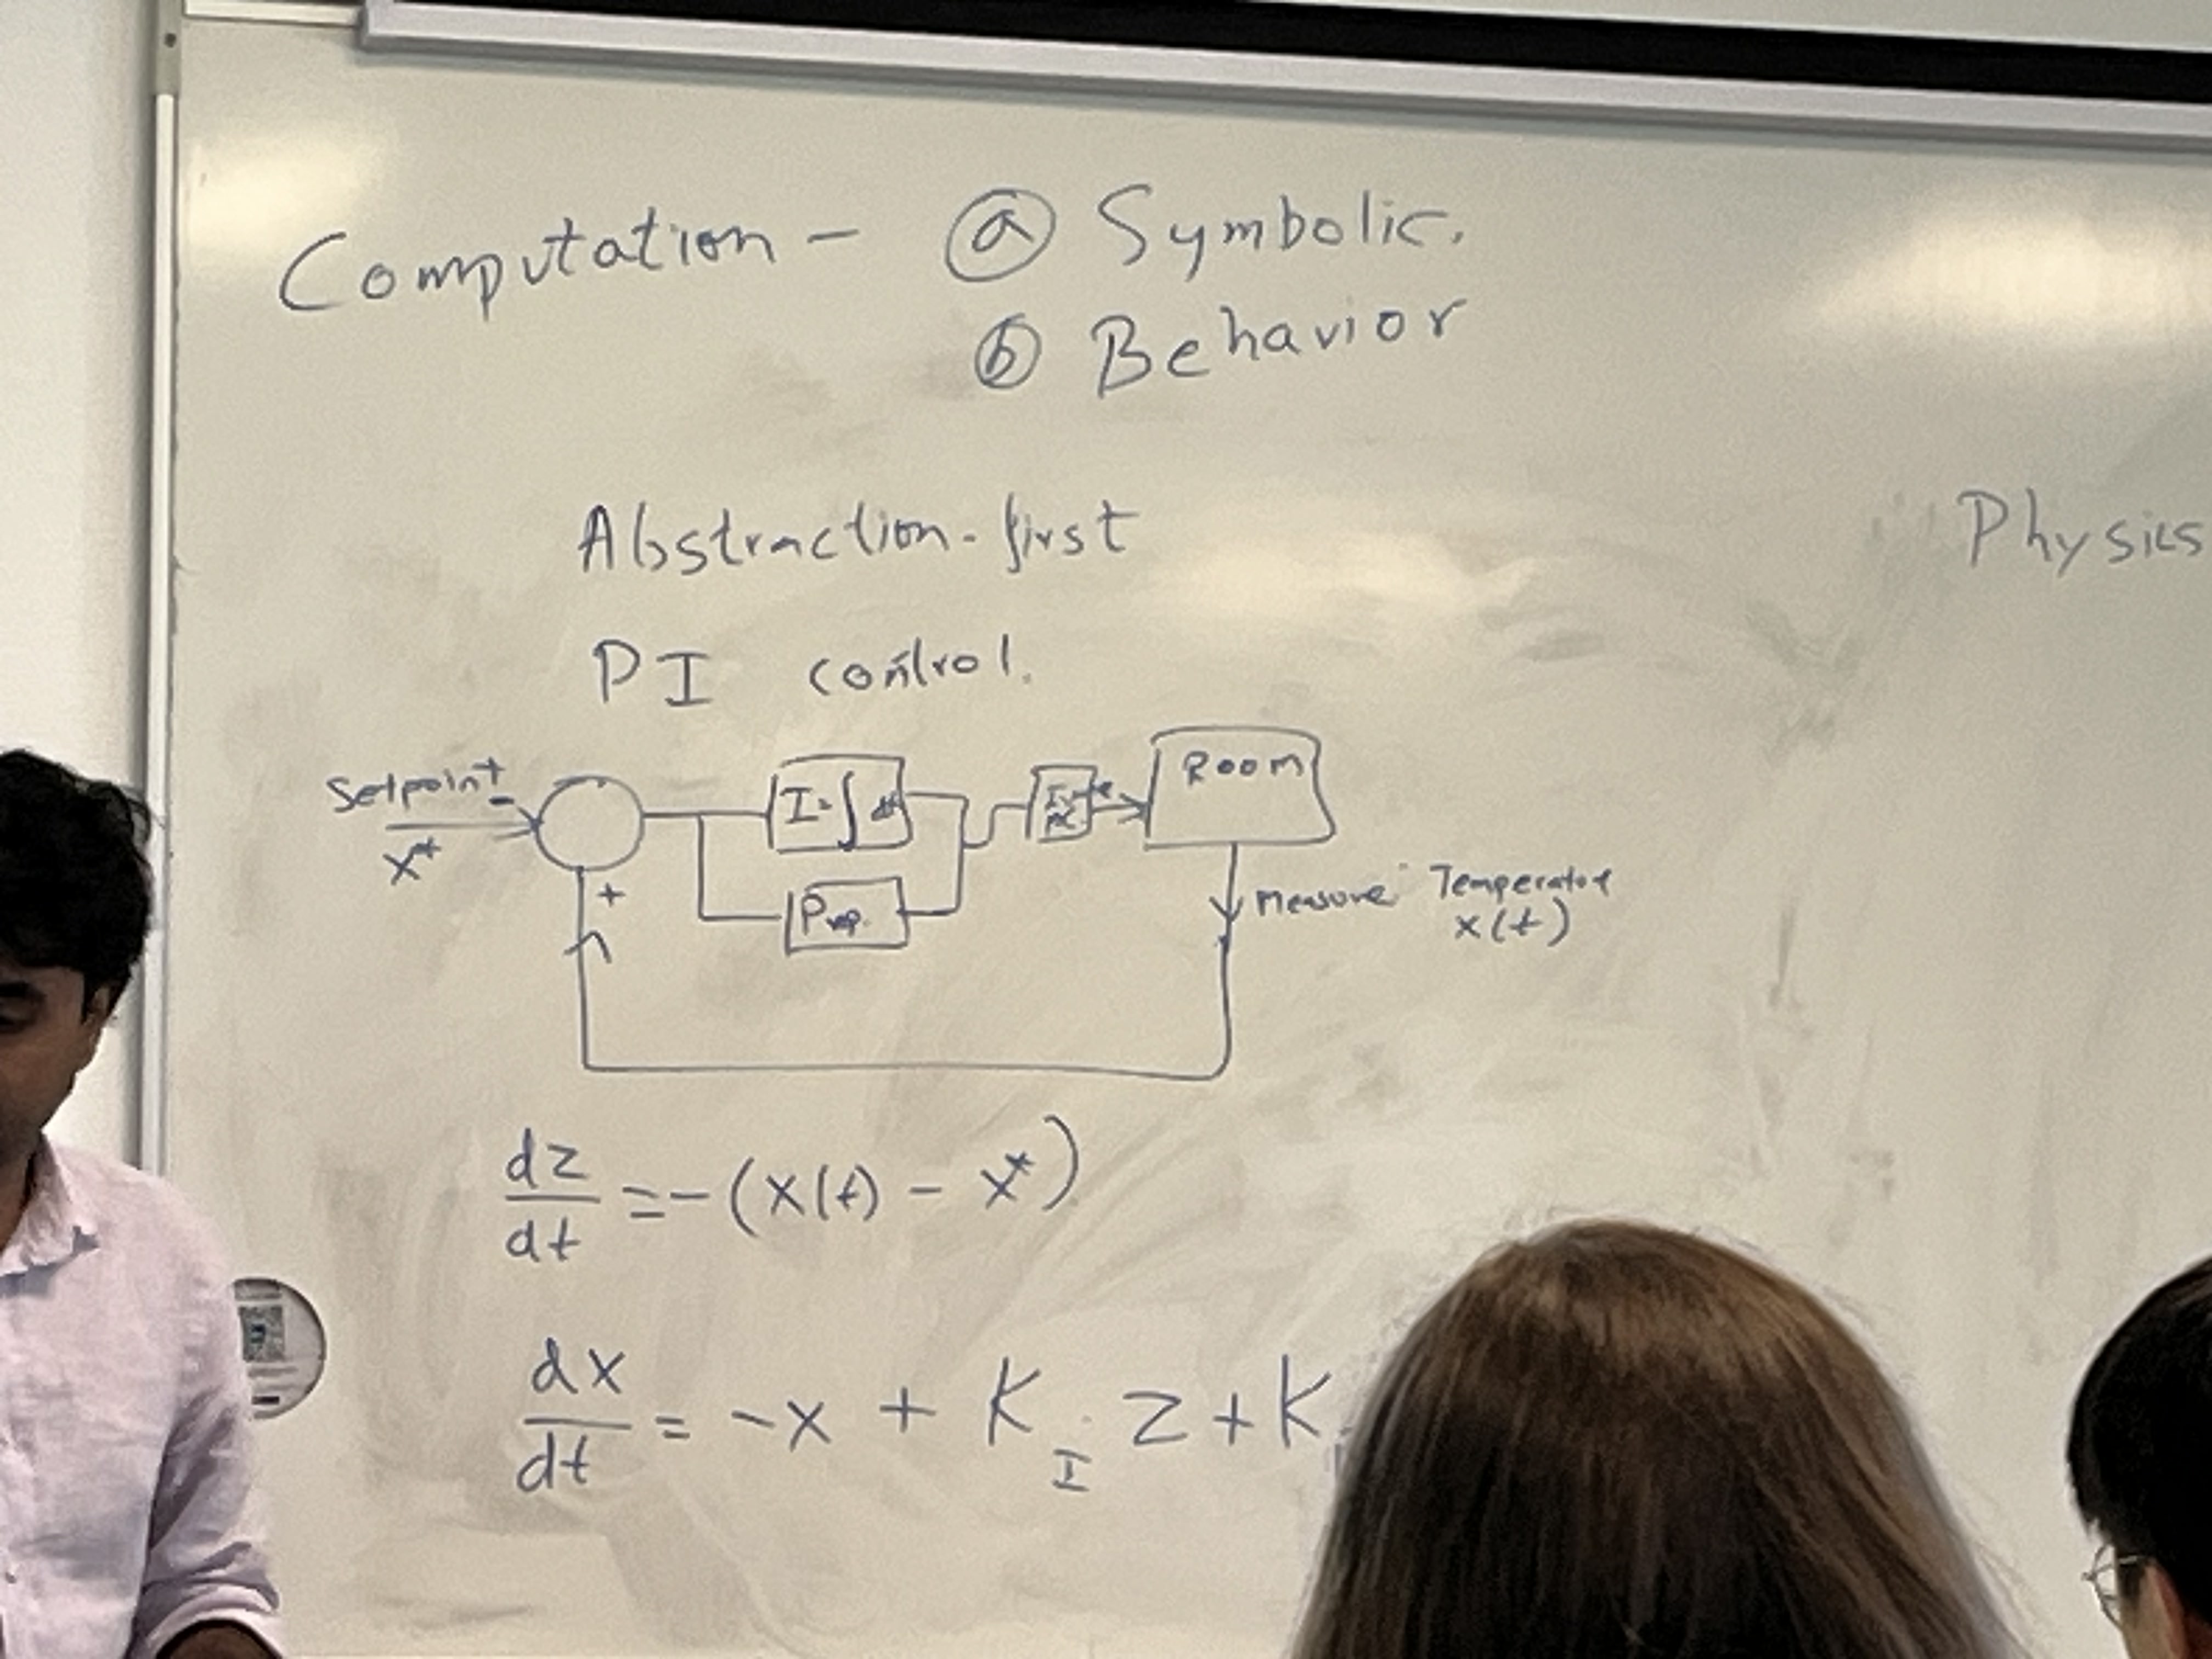 Computation - ⓐ Symbolic.
ⓑ Behavior
Abstraction-first
Physics
PI control.
Setpoint
-
x*
+
I=∫dt
Prop.
Room
Measure Temperature
x(t)
dz/dt = -(x(t) - x*)
dx/dt = -x + K_I z + K